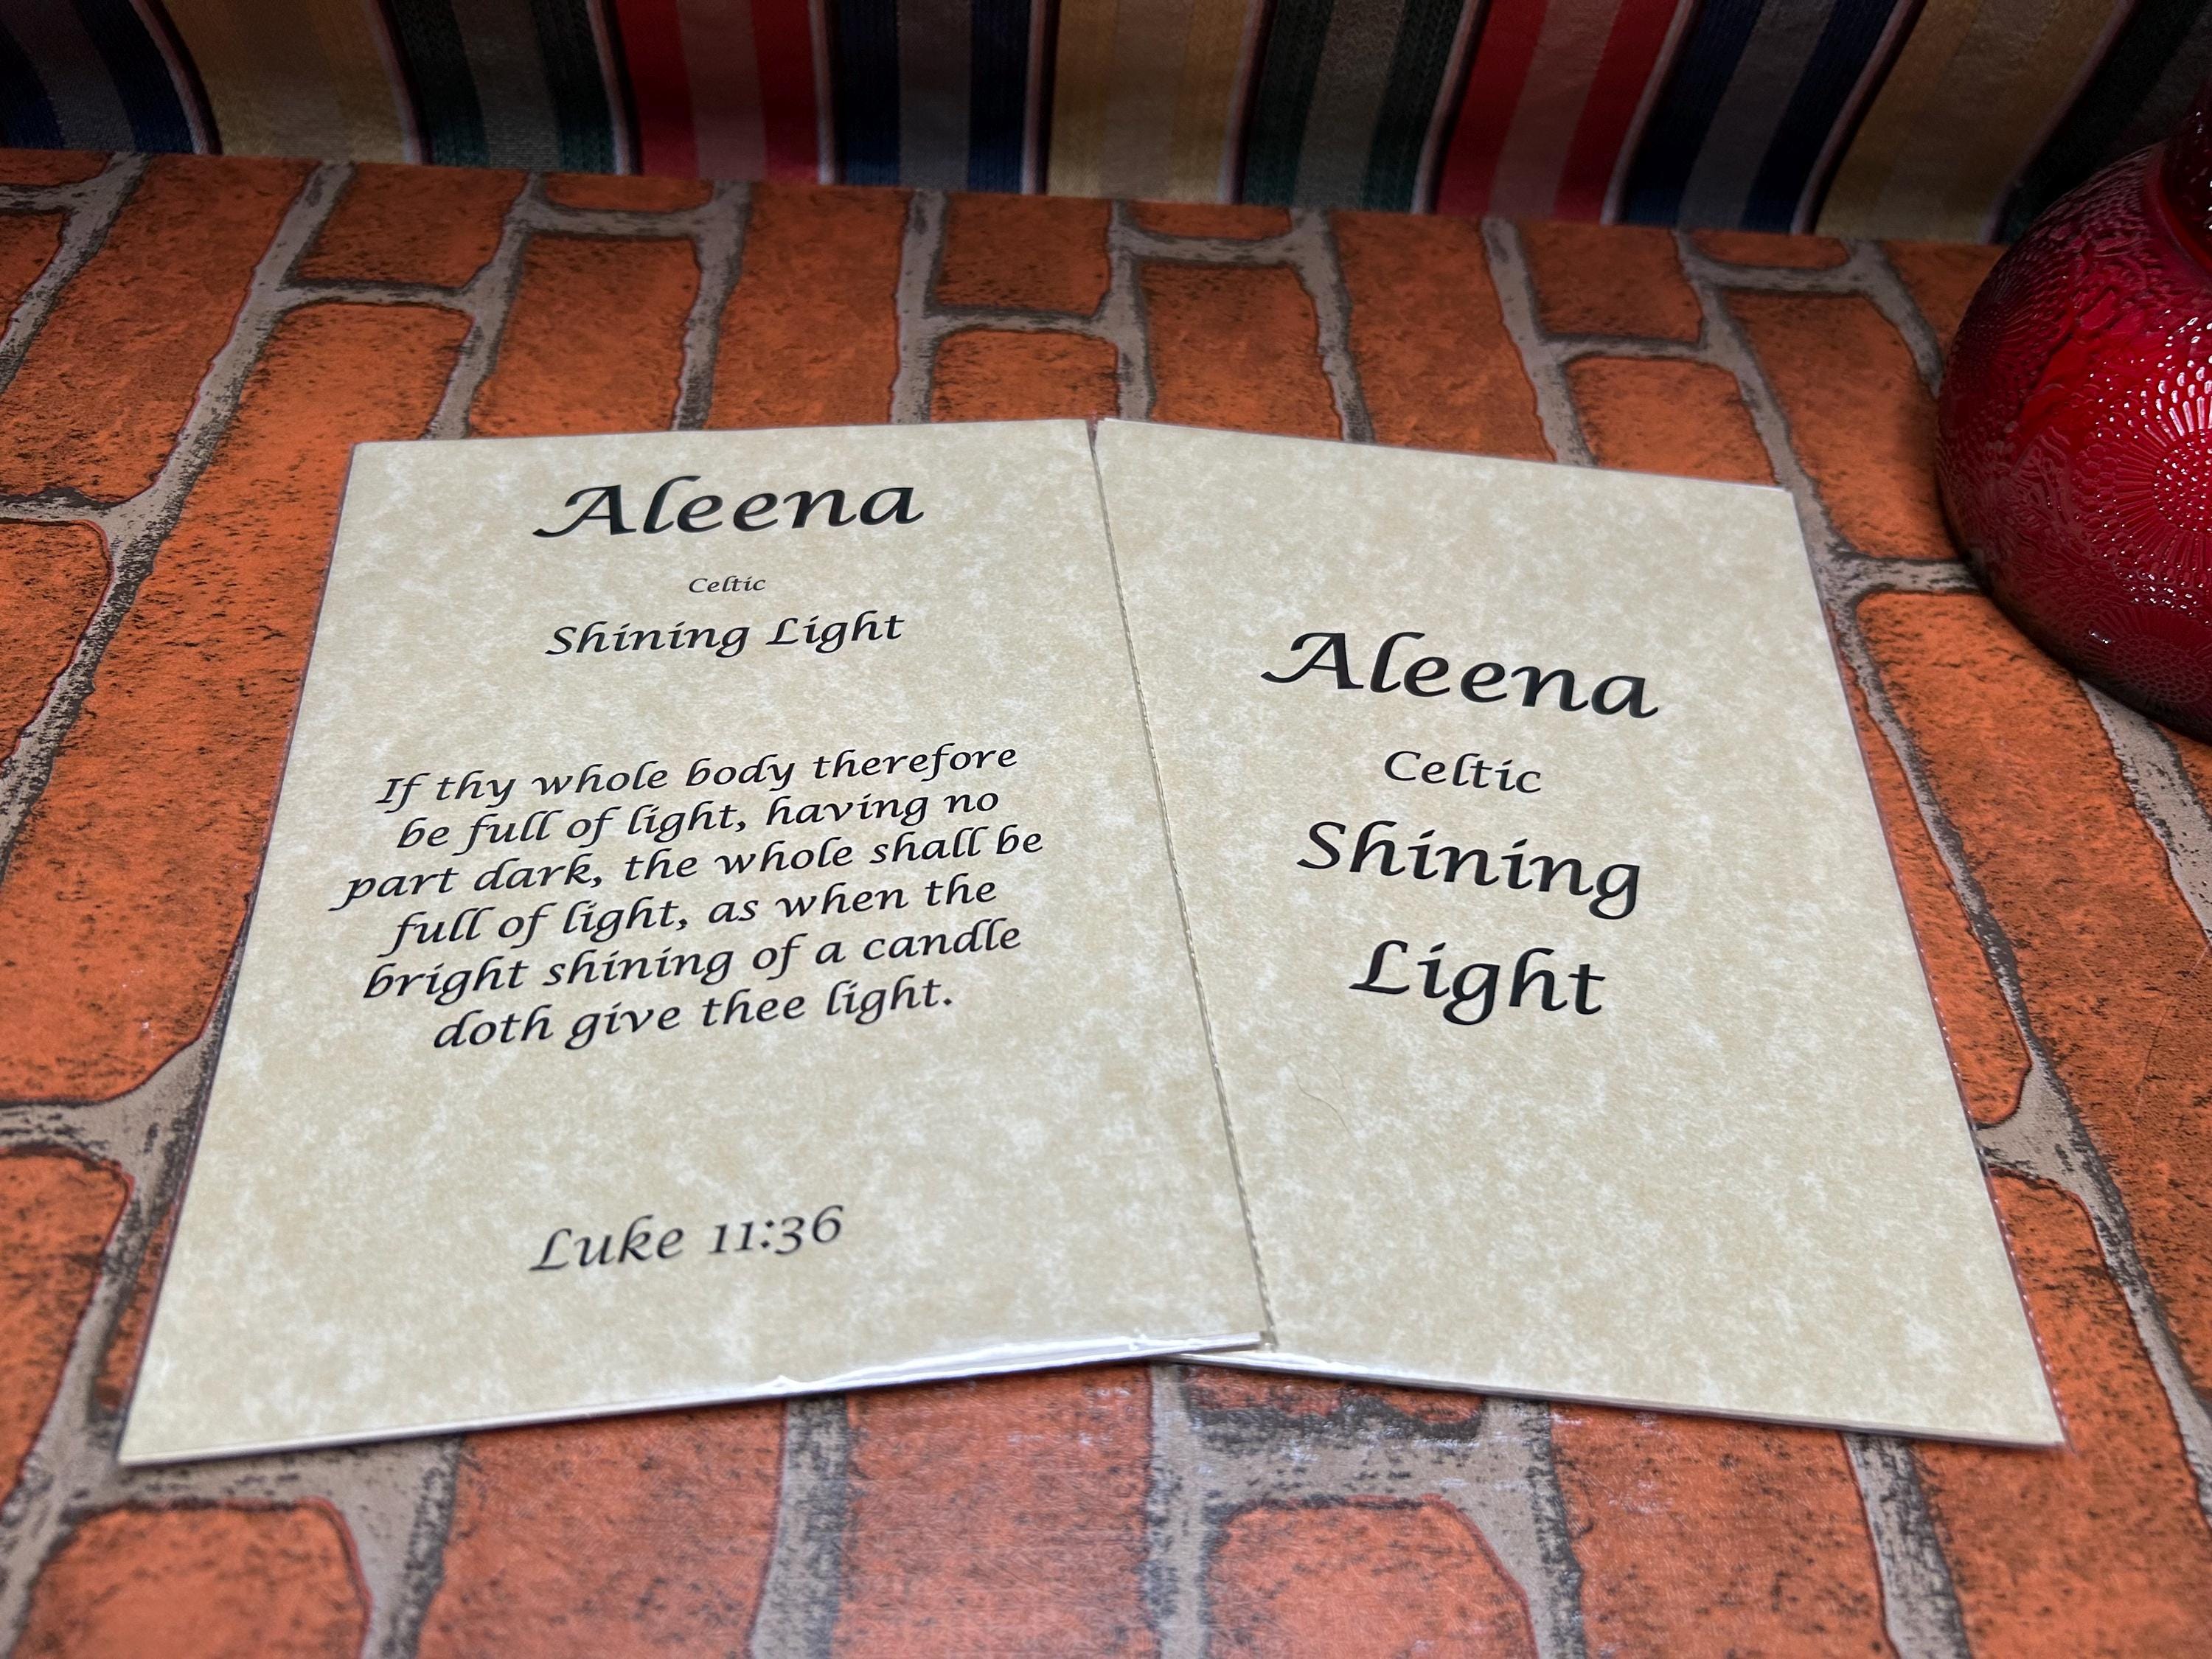 Aleena
Celtic
Shining Light
If thy whole body therefore
be full of light, having no
part dark, the whole shall be
full of light, as when the
bright shining of a candle
doth give thee light.
Luke 11:36
Aleena
Celtic
Shining
Light